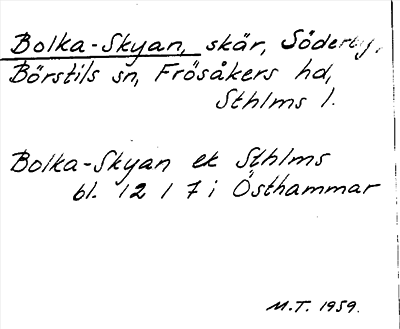 Bolka-Skyan, skär, Söderby,
Börstils sn, Frösåkers hd,
Sthlms l.
Bolka-Skyan ek Sthlms
bl. 12 1 7 i Östhammar
M.T. 1959.